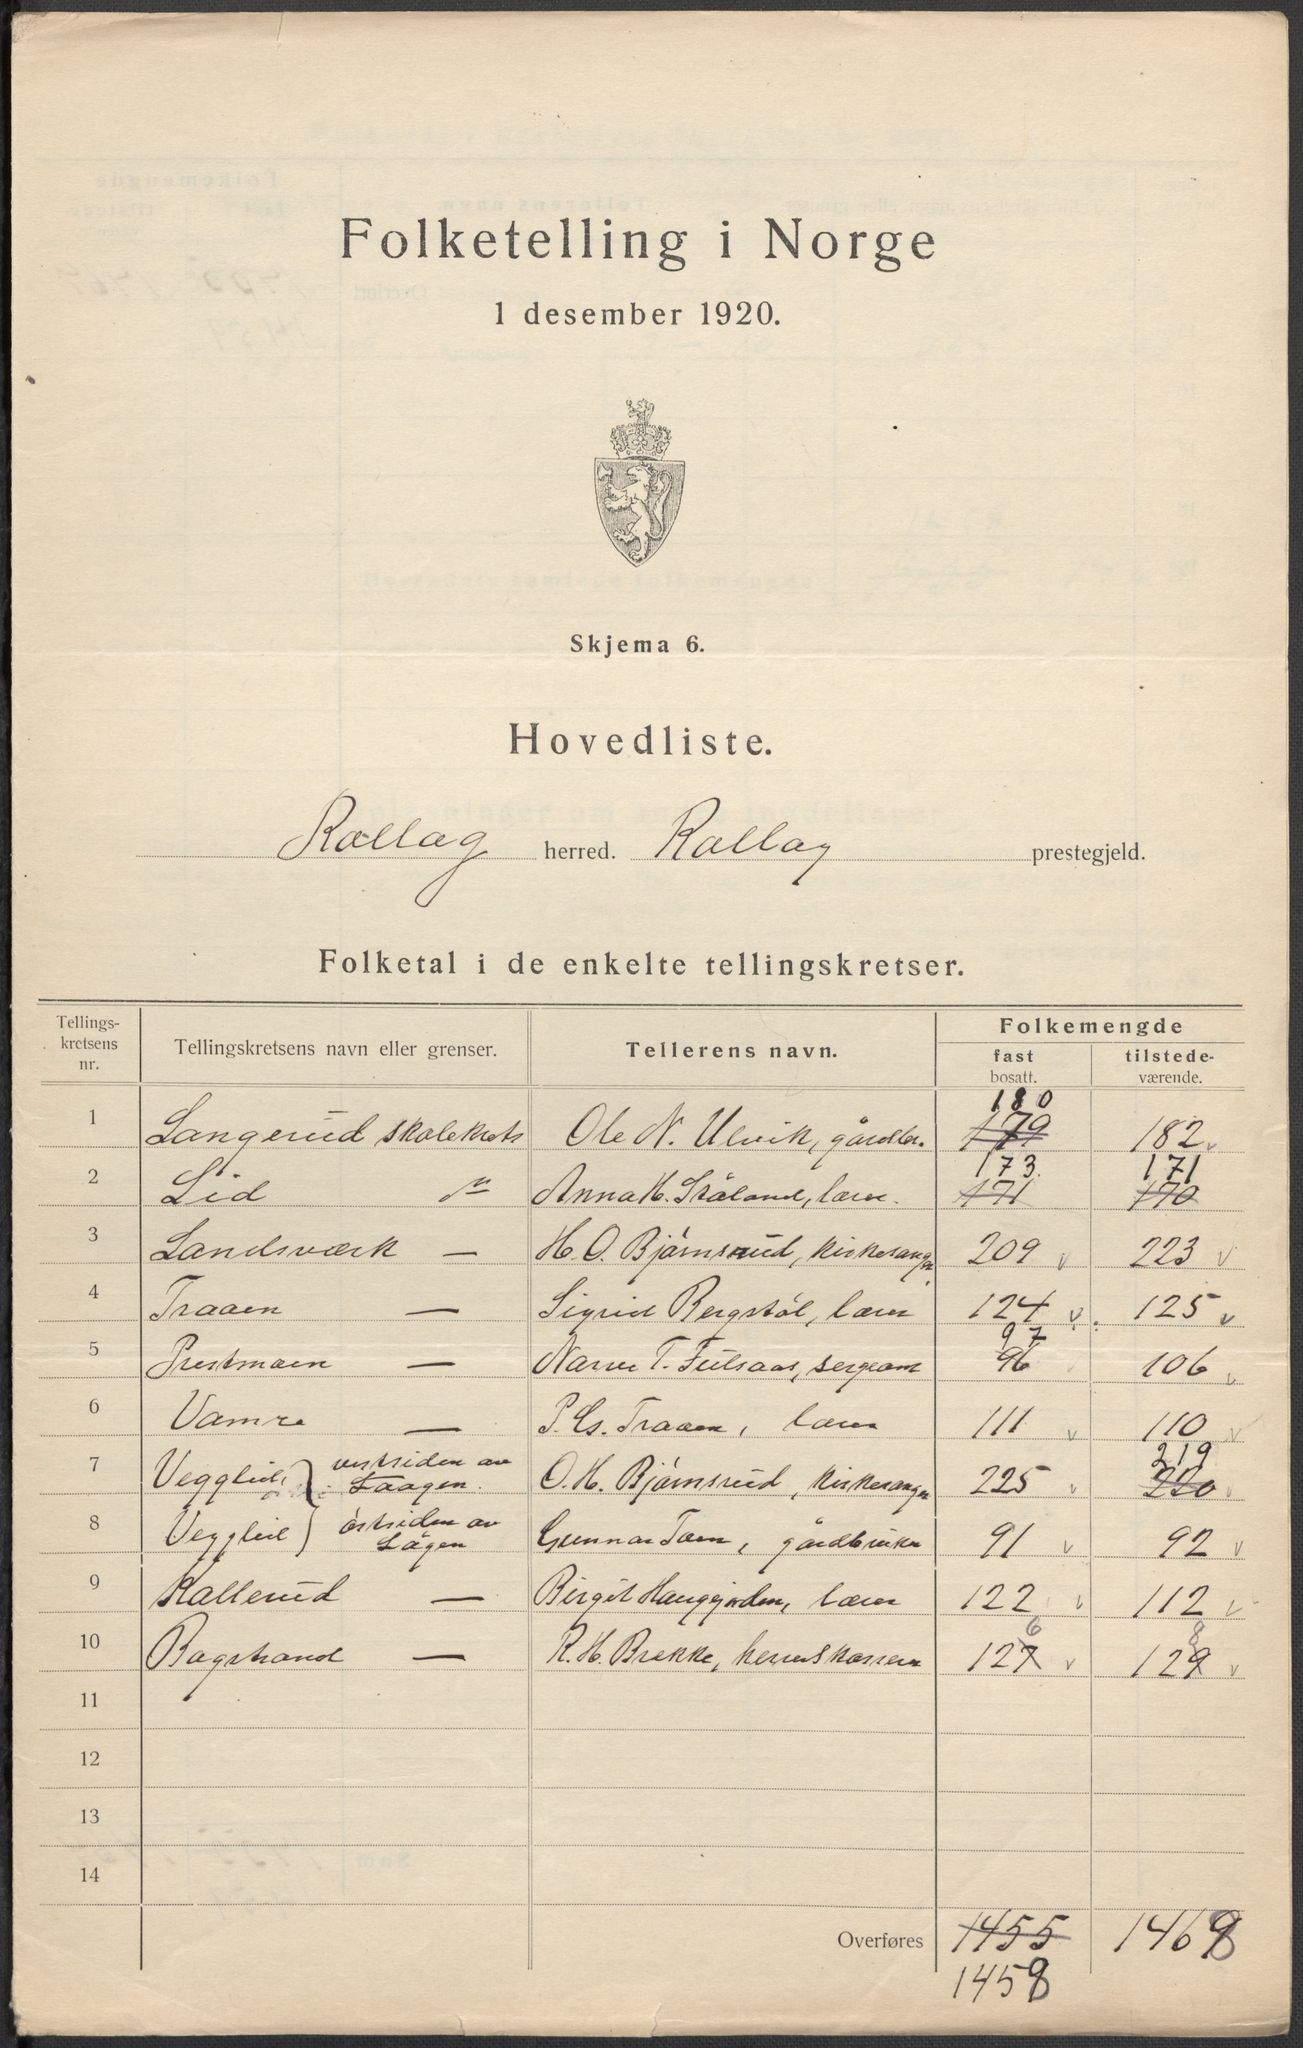 Folketelling i Norge
1 desember 1920.
Skjema 6.
Hovedliste.
Rollag herred. Rollag prestegjeld.
Folketal i de enkelte tellingskretser.
Tellings-
kretsens
nr.
Tellingskretsens navn eller grenser.
Tellerens navn.
Folkemengde
fast
bosatt.
tilstede-
værende.
180
1 Langerud skolekrets Ole N. Ulvik, gårdbr. 179 182 v
173. 171
2 Lid Anna H. lærer. 171 170
3 Landsværk — H. O. Bjørnsrud, kirkesanger 209 v 223 v
4 Traaen — Sigrid Bergstøl, lærer 124 v 125 v
97
5 Prestmoen — Narve T. sergeant 96 106 v
6 Vamre — P. Gs. Traaen, lærer 111 v 110 v
219
7 Veggli vestsiden av Laagen. O. H. Bjørnsrud, kirkesanger 225 v 220 v
8 Veggli østsiden av Lågen Gunnar Toen, gårdbruker 91 v 92 v
9 Kallerud — Birgit Haugjorden, lærer 122 v 112 v
6 8
10 Bogstrand — K. H. Brekke, herredskasserer 127 v 129 v
11
12
13
14
Overføres 1455 1468
1458